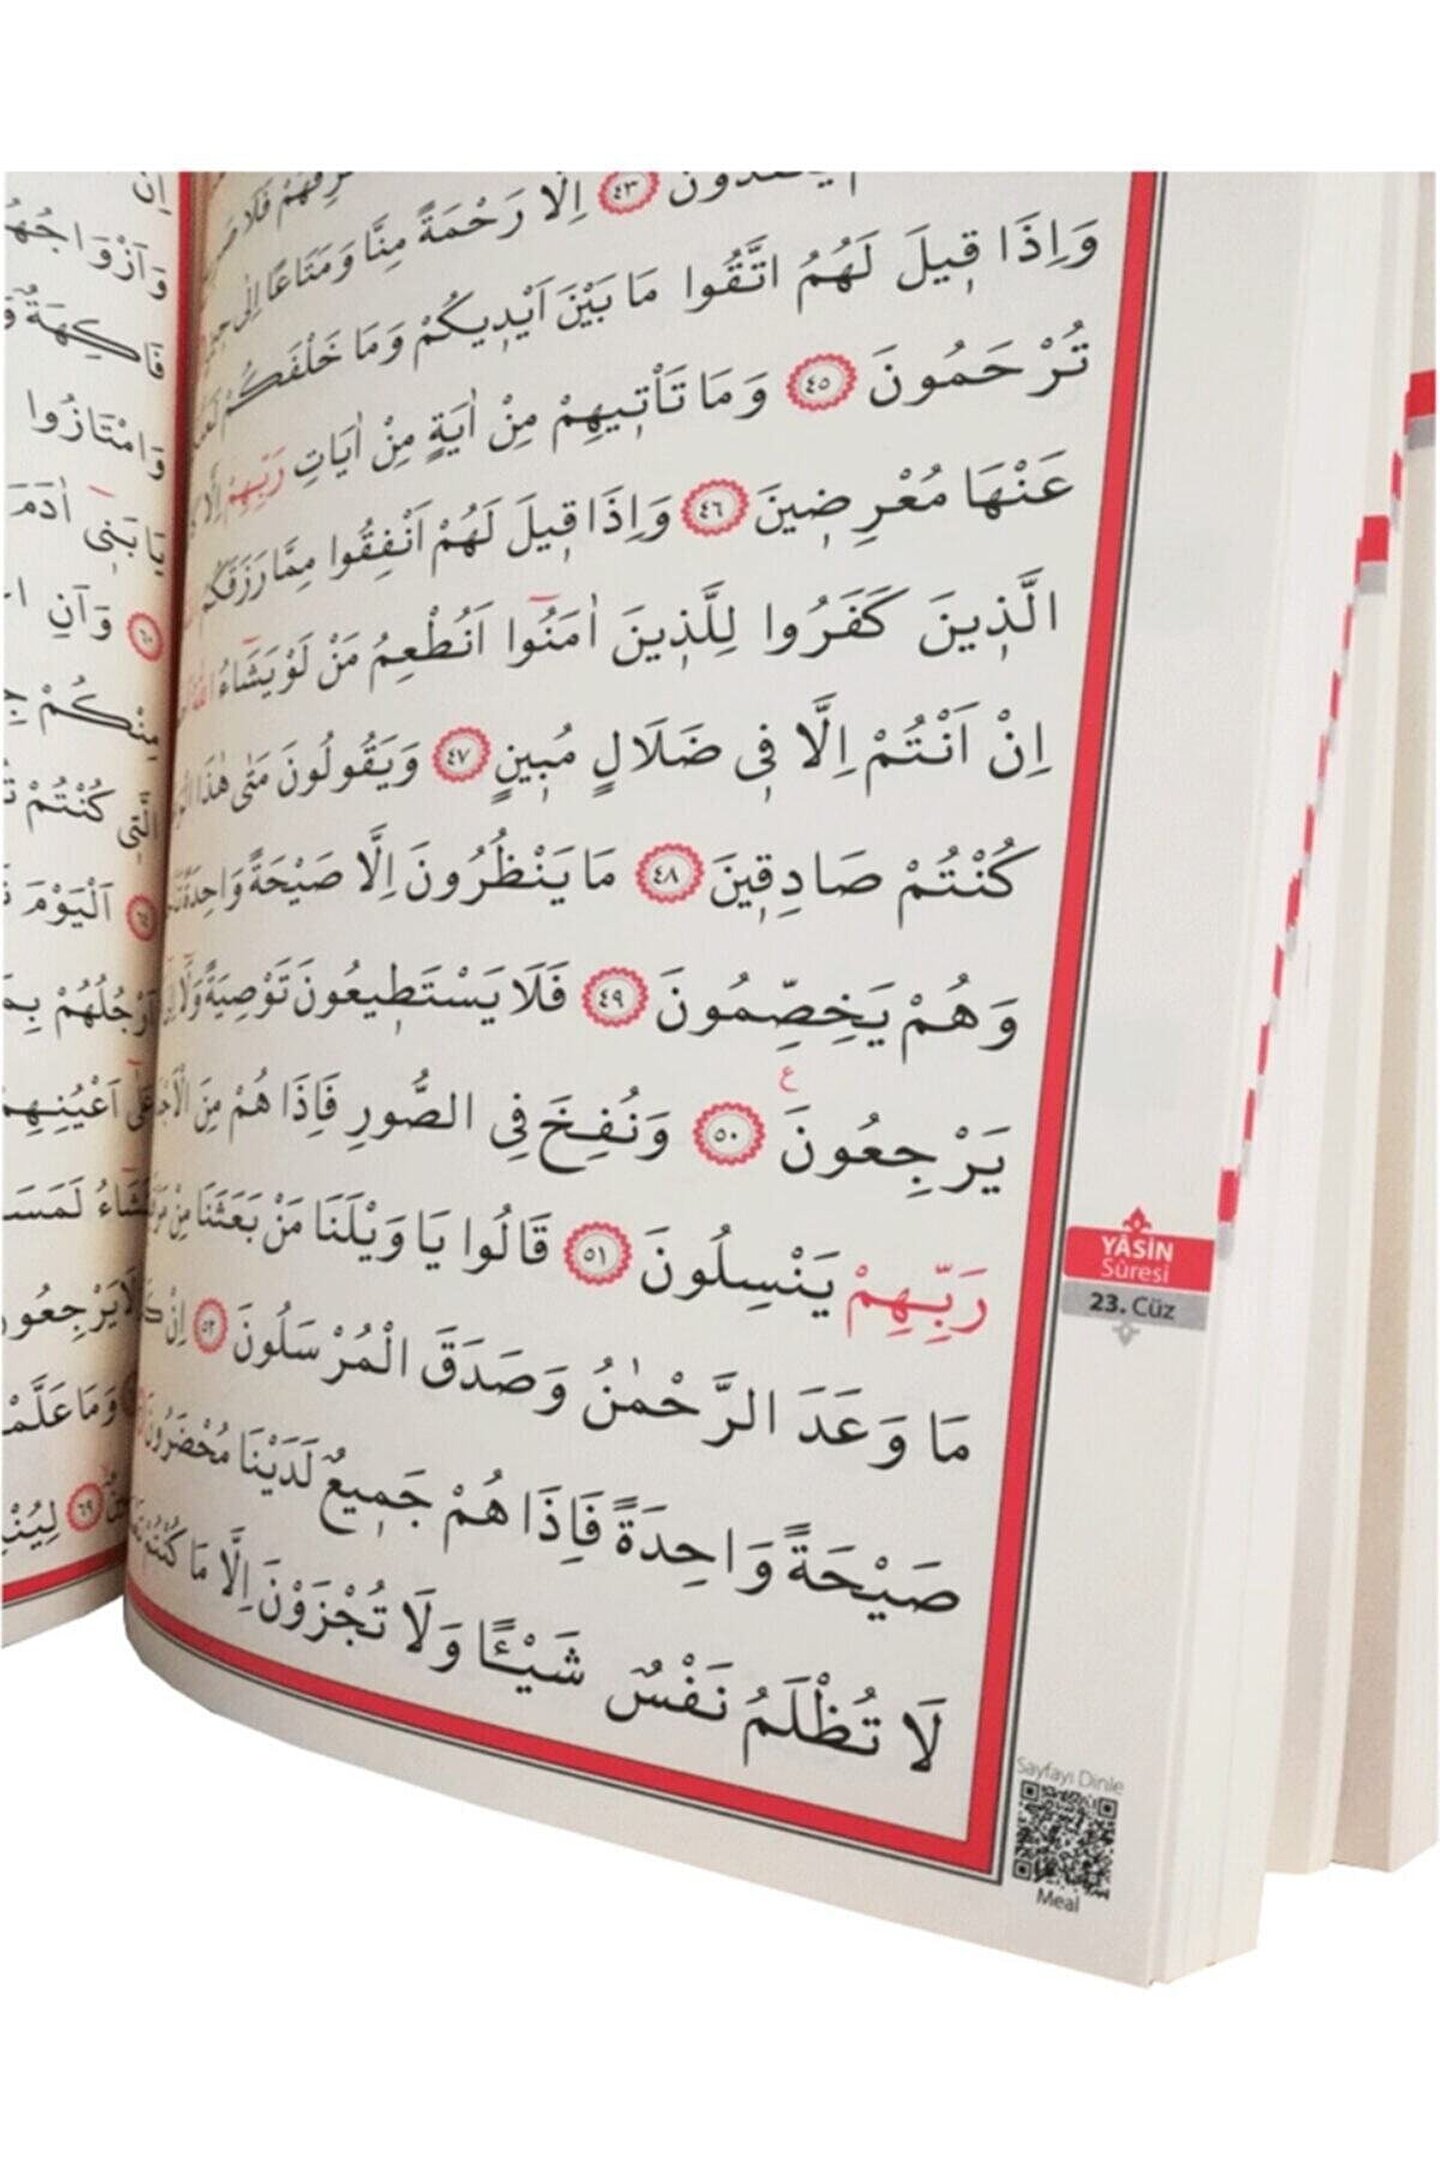 يُنْقَذُونَ ﴿٤٣﴾ اِلَّا رَحْمَةً مِنَّا وَمَتَاعًا اِلٰى
وَاِذَا قٖيلَ لَهُمُ اتَّقُوا مَا بَيْنَ اَيْدٖيكُمْ وَمَا خَلْفَكُمْ
تُرْحَمُونَ ﴿٤٥﴾ وَمَا تَأْتٖيهِمْ مِنْ اٰيَةٍ مِنْ اٰيَاتِ رَبِّهِمْ اِلَّا
عَنْهَا مُعْرِضٖينَ ﴿٤٦﴾ وَاِذَا قٖيلَ لَهُمْ اَنْفِقُوا مِمَّا رَزَقَكُمُ
الَّذٖينَ كَفَرُوا لِلَّذٖينَ اٰمَنُٓوا اَنُطْعِمُ مَنْ لَوْ يَشَٓاءُ اللّٰهُ
اِنْ اَنْتُمْ اِلَّا فٖى ضَلَالٍ مُبٖينٍ ﴿٤٧﴾ وَيَقُولُونَ مَتٰى هٰذَا
كُنْتُمْ صَادِقٖينَ ﴿٤٨﴾ مَا يَنْظُرُونَ اِلَّا صَيْحَةً وَاحِدَةً
وَهُمْ يَخِصِّمُونَ ﴿٤٩﴾ فَلَا يَسْتَطٖيعُونَ تَوْصِيَةً وَلَٓا
يَرْجِعُونَ ﴿٥٠﴾ وَنُفِخَ فِى الصُّورِ فَاِذَا هُمْ مِنَ
رَبِّهِمْ يَنْسِلُونَ ﴿٥١﴾ قَالُوا يَا وَيْلَنَا مَنْ بَعَثَنَا مِنْ
مَا وَعَدَ الرَّحْمٰنُ وَصَدَقَ الْمُرْسَلُونَ ﴿٥٢﴾ اِنْ
صَيْحَةً وَاحِدَةً فَاِذَا هُمْ جَمٖيعٌ لَدَيْنَا مُحْضَرُونَ
لَا تُظْلَمُ نَفْسٌ شَيْـًٔا وَلَا تُجْزَوْنَ اِلَّا مَا كُنْتُمْ
YÂSİN
Sûresi
23. Cüz
Sayfayı Dinle
Meal
وَاَزْوَاجُهُمْ
فَاكِهَةٌ
وَامْتَازُوا
يَا بَنٖٓى اٰدَمَ
﴿٦٠﴾ وَاَنِ
مِنْكُمْ
الَّتٖى كُنْتُمْ
اَلْيَوْمَ
اَرْجُلُهُمْ
عَلٰٓى اَعْيُنِهِمْ
لَمَسَ
يَرْجِعُونَ
وَمَا عَلَّمْ
﴿٦٩﴾